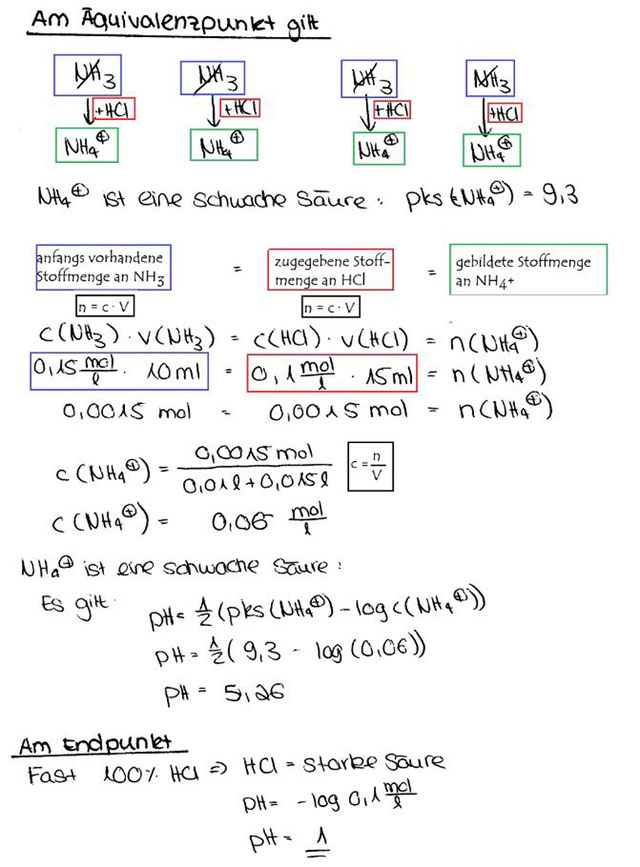 Am Äquivalenzpunkt gilt
NH3 NH3 NH3 NH3
+HCl +HCl +HCl +HCl
NH4⊕ NH4⊕ NH4⊕ NH4⊕
NH4⊕ ist eine schwache Säure: pks (NH4⊕) = 9,3
anfangs vorhandene Stoffmenge an NH3 = zugegebene Stoff-menge an HCl = gebildete Stoffmenge an NH4+
n = c · V n = c · V
c(NH3) · V(NH3) = c(HCl) · V(HCl) = n(NH4⊕)
0,15 mol/l · 10ml = 0,1 mol/l · 15ml = n(NH4⊕)
0,0015 mol = 0,0015 mol = n(NH4⊕)
c(NH4⊕) = 0,0015 mol / 0,01l + 0,015l c = n/V
c(NH4⊕) = 0,06 mol/l
NH4⊕ ist eine schwache Säure:
Es gilt: pH = 1/2 (pks(NH4⊕) - log c(NH4⊕))
pH = 1/2 (9,3 - log (0,06))
pH = 5,26
Am Endpunkt
Fast 100% HCl => HCl = starke Säure
pH = - log 0,1 mol/l
pH = 1